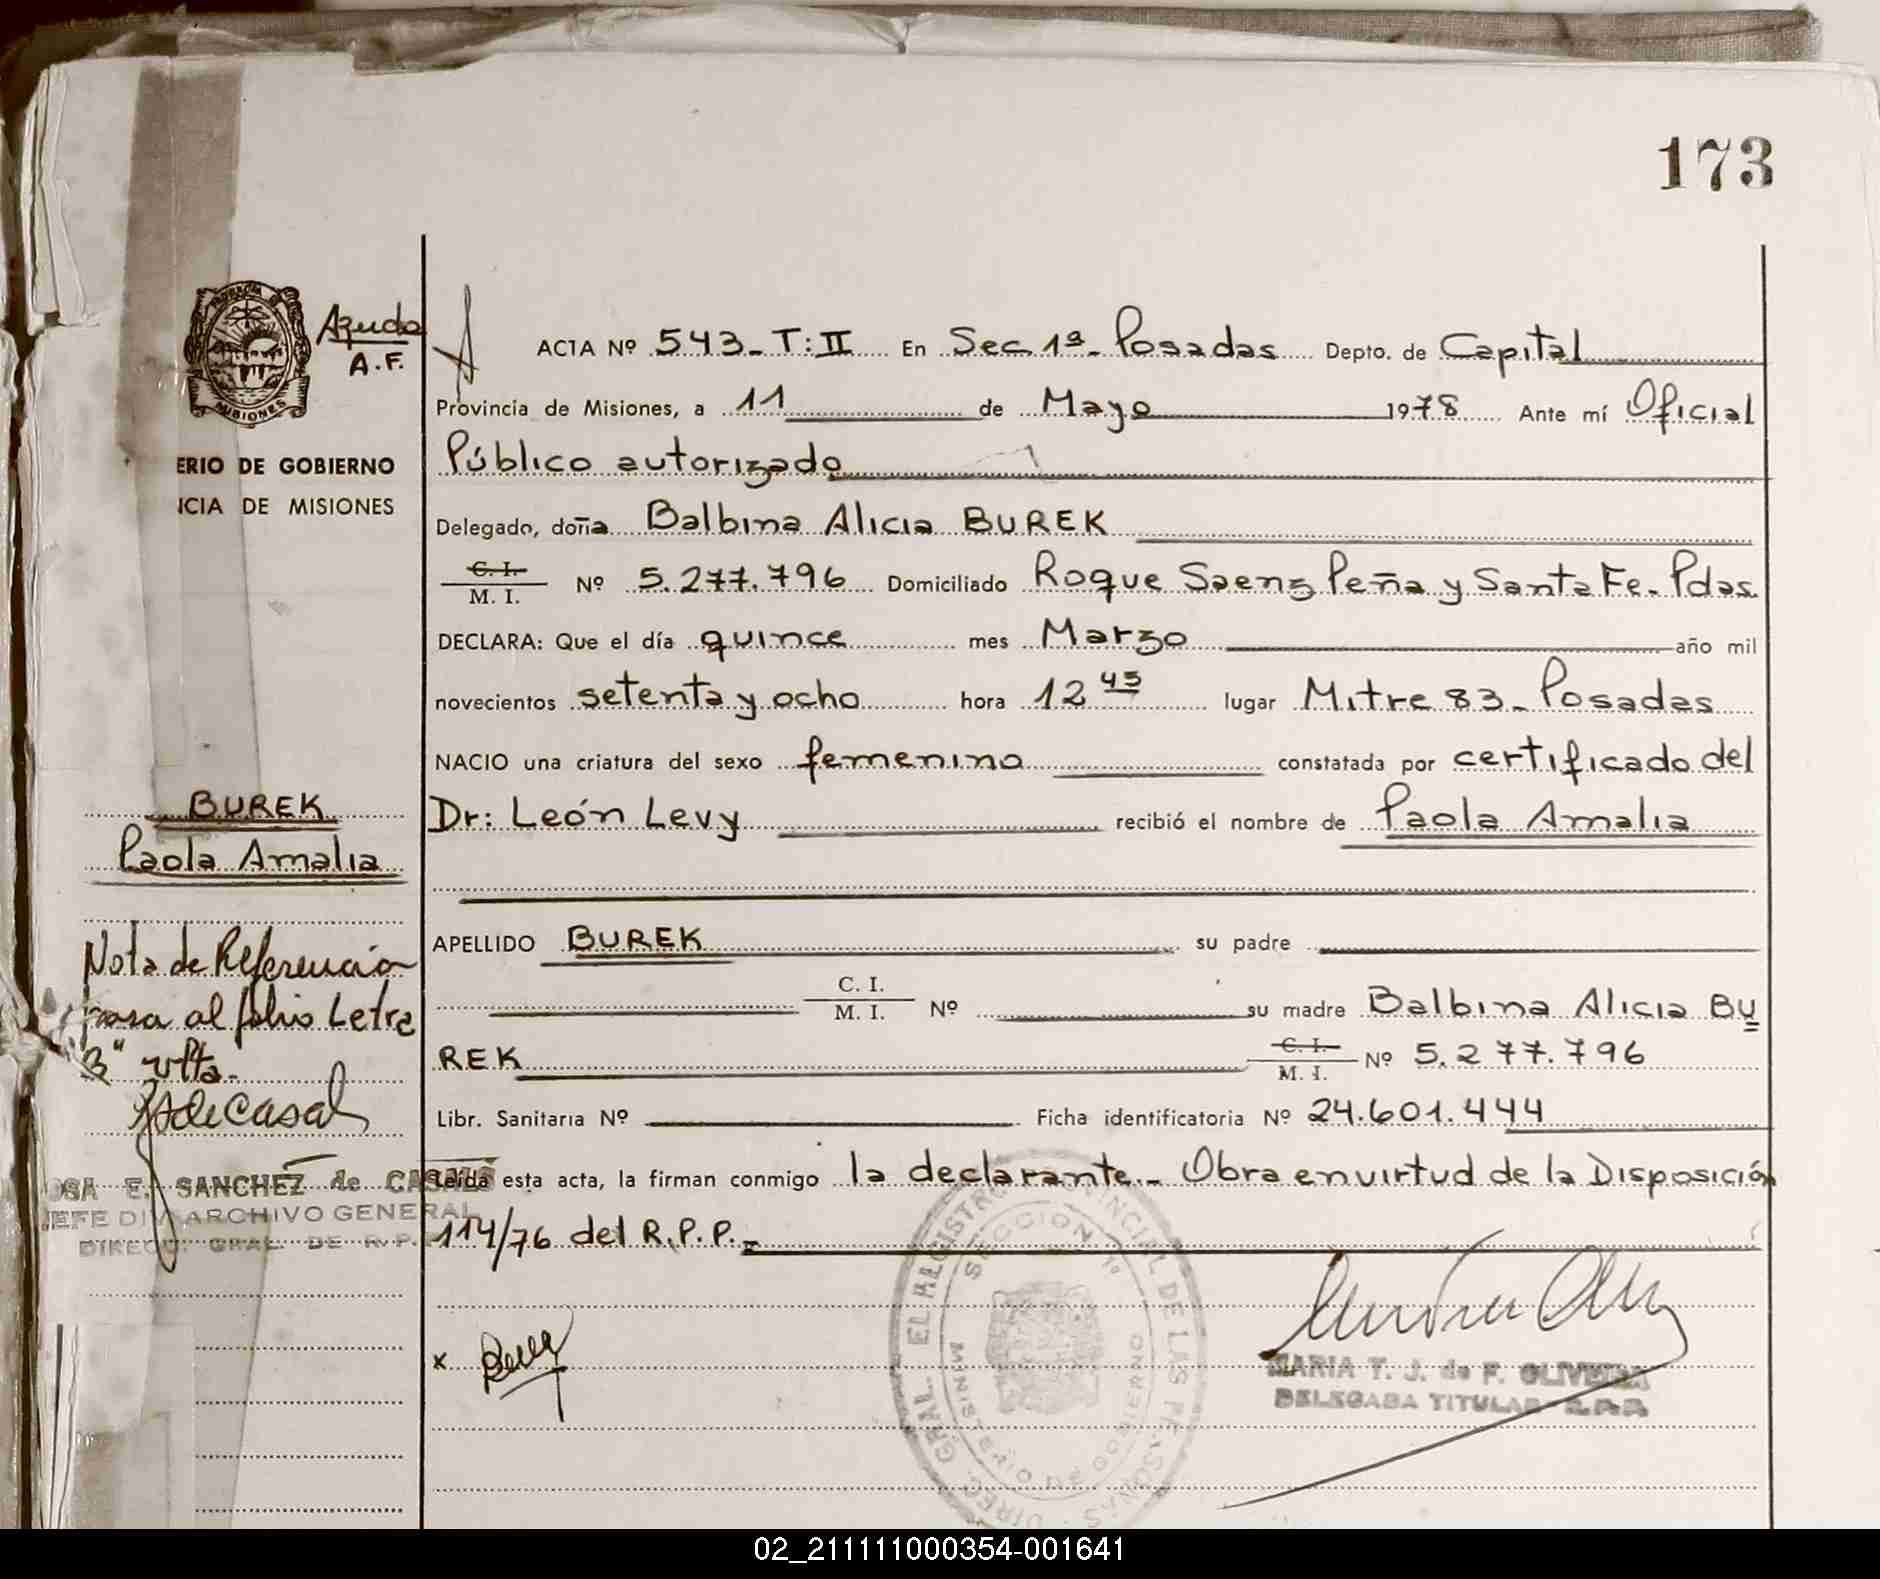 173
Azuda
A.F.
MISIONES
ERIO DE GOBIERNO
NCIA DE MISIONES
ACTA Nº 543-T:II En Sec. 1ª- Posadas Depto. de Capital
Provincia de Misiones, a 11 de Mayo 1978 Ante mí Oficial
Público autorizado
Delegado, doña Balbina Alicia BUREK
C. I. / M. I. Nº 5.277.796 Domiciliado Roque Saenz Peña y Santa Fe- Pdas.
DECLARA: Que el día quince mes Marzo año mil
novecientos setenta y ocho hora 12 45 lugar Mitre 83- Posadas
NACIO una criatura del sexo femenino constatada por certificado del
Dr: León Levy recibió el nombre de Paola Amalia
APELLIDO BUREK su padre
C. I. / M. I. Nº su madre Balbina Alicia BU
REK C. I. / M. I. Nº 5.277.796
Libr. Sanitaria Nº Ficha identificatoria Nº 24.601.444
Leída esta acta, la firman conmigo la declarante.- Obra en virtud de la Disposición
114/76 del R.P.P.-
BUREK
Paola Amalia
Nota de Referencia
pasa al folio Letra
"B" vlta.
OSA E. SANCHEZ de CASALS
JEFE DIV. ARCHIVO GENERAL
DIRECC. GRAL. DE R.P.
x
DIREC. GRAL. EL REGISTRO PROVINCIAL DE LAS PERSONAS
SECCION 1ª
MINISTERIO DE GOBIERNO
MARIA T. J. de F. OLIVEIRA
DELEGADA TITULAR R.P.P.
02_211111000354-001641